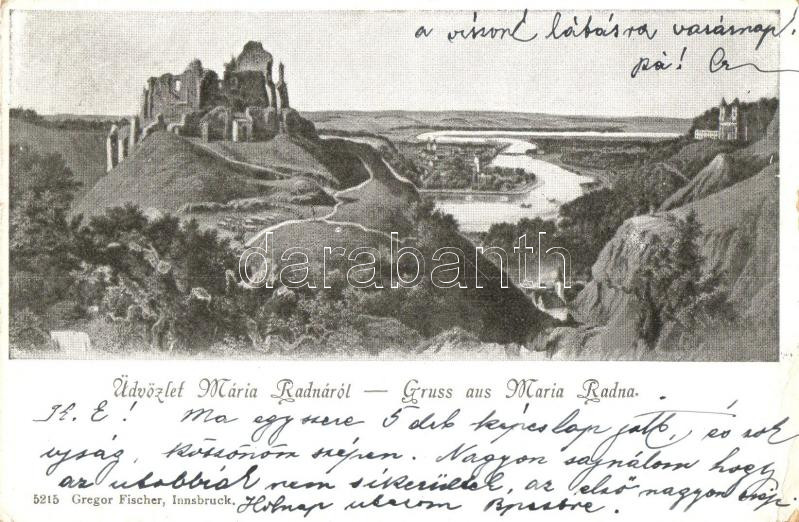 a viszont látásra vasárnap!
pá!
darabanth
Üdvözlet Mária Radnáról — Gruss aus Maria Radna.
K. E! Ma egyszere 5 drb képeslap jött, és sok
ujság, köszönöm szépen. Nagyon sajnálom hogy
az utobbiak nem sikerültek, az első nagyon
5215 Gregor Fischer, Innsbruck. Holnap utazom Bpestre.